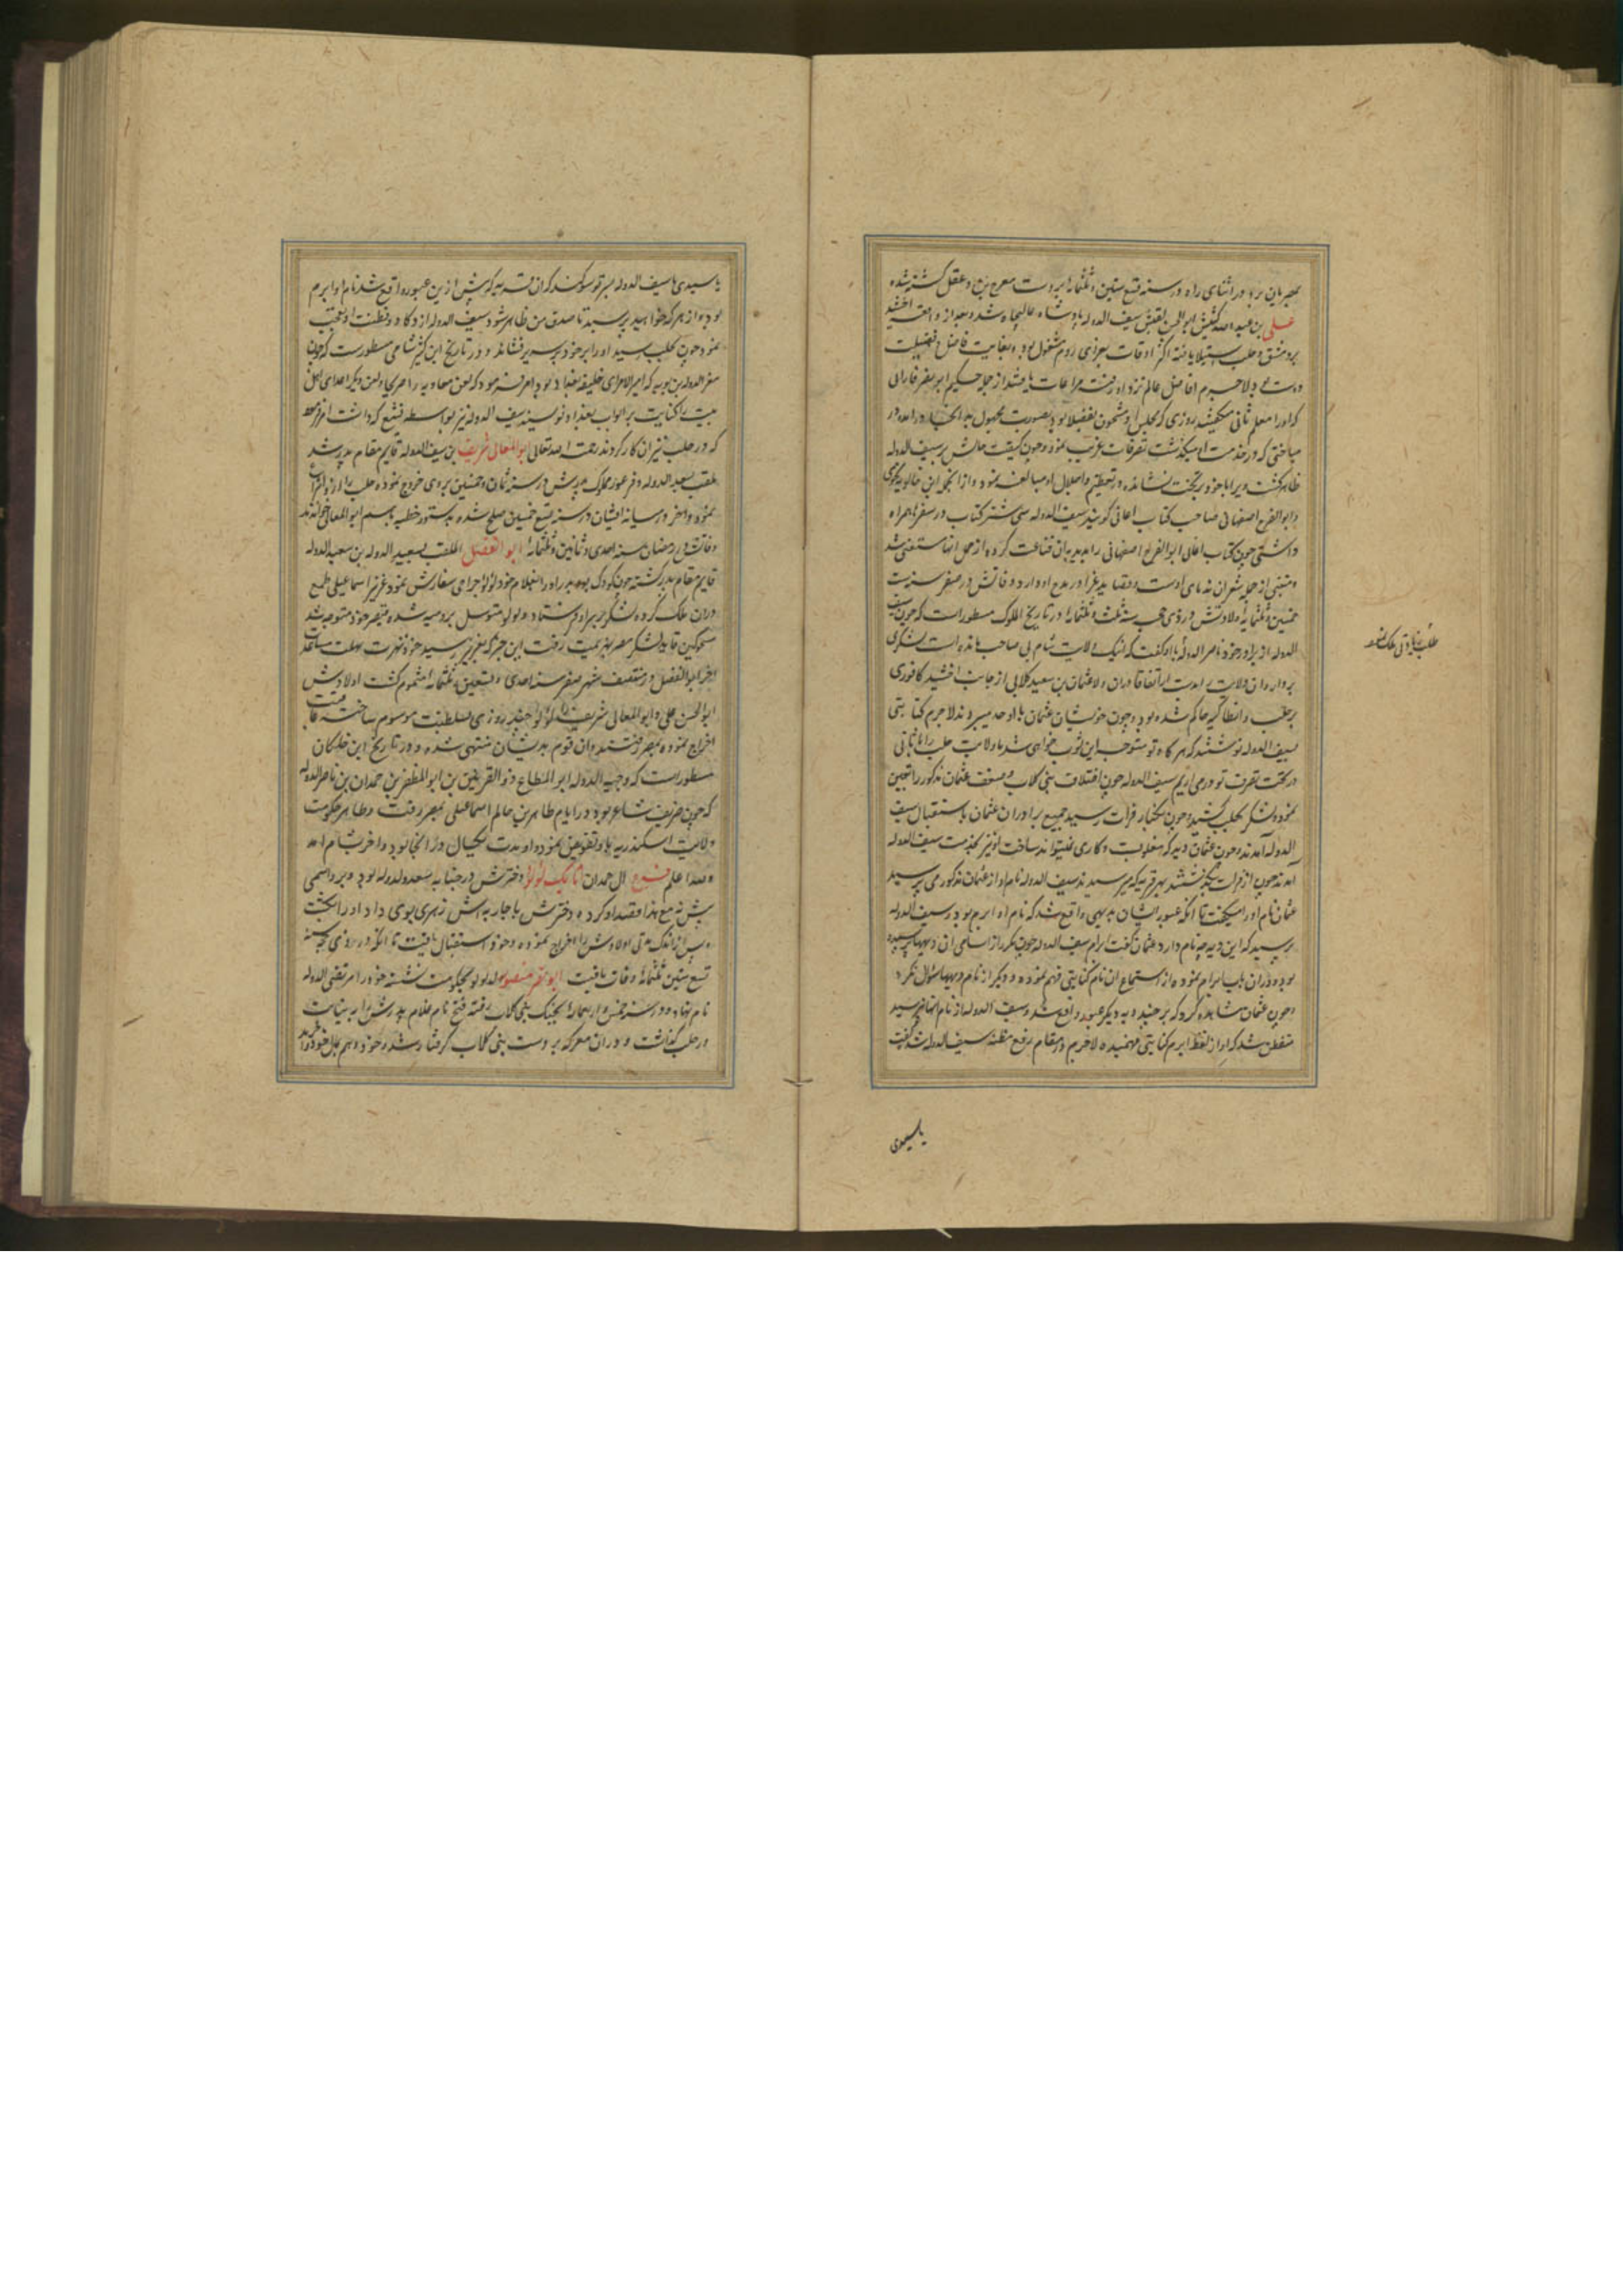 بمصر باین برد در اثنای راه در سنه تسع ستین و ثلثمائه بر دست مفرج بن دعقل کشته شده
علی بن عبد الله کنیتش ابو الحسن لقبش سیف الدوله پادشاه عالیجاه شد و بعد از واقعه اخشید
بر دمشق و حلب استیلا یافته اکثر اوقات بغزای روم مشغول بود و بغایت فاضل فضیلت
دوست می بود لاجرم افاضل عالم نزد او رفته مراعات یافتند از جمله حکیم ابو نصر فارابی
که او را معلم ثانی میگفتند روزی که مجلس او مشحون بفضلا بود بصورت مجهول بدانجا در آمد و در
مباحثی که در خدمت او میگذشت تصرفات غریب نمود و چون کیفیت حالش بر سیف الدوله
ظاهر گشت ویرا با خود بر تخت نشانده در تعظیم و اجلال او مبالغه نمود و از آنجمله ابن خالویه نحوی
و ابو الفرج اصفهانی صاحب کتاب اغانی گویند سیف الدوله سی شتر کتاب در سفر همراه
داشتی چون کتاب اغانی ابو الفرج اصفهانی را بدید بدان قناعت کرده از حمل آنها مستغنی شد
و متنبی از جمله شعرا ندمای اوست و قصاید غرا در مدح او دارد و وفاتش در صفر سنه ست
خمسین و ثلثمائه ولادتش در ذی حجه سنه ثلث و ثلثمائه در تاریخ الملوک مسطور است که چون سیف
الدوله از برادر خود ناصر الدوله با او گفت که اینک ولایت شام بی صاحب مانده است لشکری
بردار و آن ولایت را بدست آر اتفاقا دران ولا عثمان بن سعید کلابی از جانب اخشید کافوری
بر حلب و انطاکیه حاکم شده بود و چون خویشان عثمان با او حسد میبردند لاجرم کتابتی
بسیف الدوله نوشتند که هر گاه تو متوجه این صوب خواهی شد ما ولایت حلب را بآسانی
در تحت تصرف تو درمی آریم سیف الدوله چون اختلاف بنی کلاب و ضعف عثمان مذکور را یقین
نموده لشکر بحلب کشید و چون بکنار فرات رسید جمیع برادران عثمان باستقبال سیف
الدوله آمدند و چون عثمان دید که مغلوبست و کاری نمیتواند ساخت او نیز بخدمت سیف الدوله
آمد و چون از فرات بگذشتند بهر قریه که میرسیدند سیف الدوله نام او از عثمان مذکور می پرسید
عثمان نام او را میگفت تا آنکه عبور ایشان بدیهی واقع شد که نام او ابرم بود و سیف الدوله
پرسید که این دیه چه نام دارد عثمان گفت ابرم سیف الدوله چون مکرر از اسامی آن دیهها پرسیده
بود و دران باب ابرام نموده از استماع آن نام کنایتی فهم نموده و دیگر از نام دیهها سؤال نکرد
و چون عثمان مشاهده کرد که بر چند دیه دیگر عبور واقع شد و سیف الدوله از نام آنها نپرسید
متفطن شد که او از لفظ ابرم کنایتی فهمیده لاجرم در مقام رفع مظنه سیف الدوله شد گفت
یا سیدی
یا سیدی یا سیف الدوله بسر تو سوگند که آن قریه که پیش ازین عبور واقع شد نام او ابرم
بود و از هر که خواهید پرسید تا صدق من ظاهر شود سیف الدوله از ذکا و فطنت او تعجب
نمود چون بحلب رسید او را بر خود بر سریر نشاند و در تاریخ ابن کثیر شامی مسطور است که چون
معز الدوله بن بویه که امیر الامرای خلیفه بغداد بود امر فرمود که لعن معاویه را صریحا و لعن دیگر اعدای اهل
بیت را کنایت بر ابواب بغداد نویسند سیف الدوله نیز بواسطه تشیع که داشت امر فرمود
که در حلب نیز آن کار کردند رحمت الله تعالی ابو المعالی شریف بن سیف الدوله قایم مقام پدر شد
ملقب بسعد الدوله و فرغویه مملوک پدرش در سنه ثمان و خمسین بر وی خروج نموده حلب را ازو انتزاع
نمود و آخر در میانه ایشان در سنه تسع خمسین صلح شده بدستور خطبه باسم ابو المعالی خواندند
وفاتش در رمضان سنه احدی و ثمانین و ثلثمائه ابو الفضل الملقب بسعید الدوله بن سعد الدوله
قایم مقام پدر گشته چون کودک بود پدر او را بغلام خود لؤلؤ جراحی سفارش نمود عزیز اسماعیلی طمع
دران ملک کرده لشکر بر سر او فرستاد و لولو متوسل بروم شده قیصر خود متوجه شد
منجوتکین قاید لشکر مصر بهزیمت رفت این خبر که بعزیز رسید خود نهضت
اخر ابو الفضل در منتصف شهر صفر سنه احدی و تسعین و ثلثمائه مسموم گشت اولادش
ابو الحسن علی و ابو المعالی شریف را لؤلؤ چند روزی بسلطنت موسوم ساخته عاقبت
اخراج نموده بمصر رفتند و آن قوم بدیشان منتهی شده و در تاریخ ابن خلکان
مسطور است که وجیه الدوله ابو المطاع ذو القرنین بن ابو المظفر بن حمدان بن ناصر الدوله
که چون ظریف شاعر بود در ایام ظاهر بن حاکم اسماعیلی بمصر رفت و ظاهر حکومت
ولایت اسکندریه باو تفویض نموده او مدت یکسال در آنجا بود و آخر بشام آمد
و الله اعلم فرع آل حمدان اتابک لؤلؤ دخترش در حباله سعد الدوله بود و پیر و اسمی
بیش نه مع هذا قصد او کرده دخترش با جاریه اش زهری بوی داد او را بکشت
و پس از اندک مدتی اولادش را اخراج نموده و خود استقلال یافت تا آنکه در ذی حجه سنه
تسع ستین ثلثمائه وفات یافت ابو نصر منصور بن لولو بحکومت نشسته خود را مرتضی الدوله
نام نهاد و در سنه خمس و اربعمائه بجنگ بنی کلاب رفته فتح نام غلام پدرش را به نیابت
در حلب گذاشت و دران معرکه بر دست بنی کلاب گرفتار شد و خود هم بمال خود را خرید